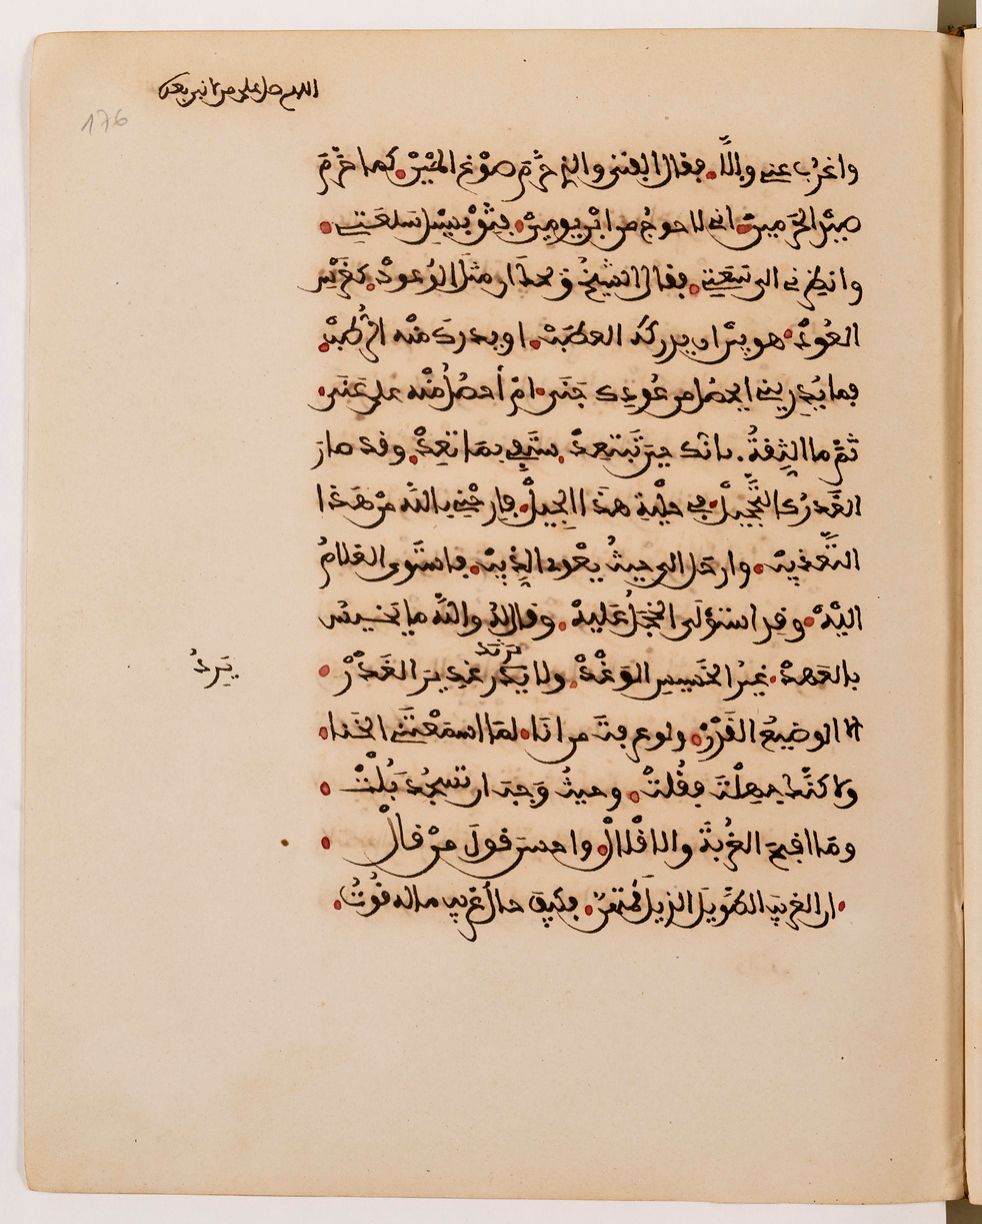 اللهم صل على من لا نبي بعده
176
واغرب عني وإلا. فقال الفتى والذي حرم صوغ المين. كما حرم
صيد الحرمين. اني لاحوج من ابن يومين. فثق بسيل تلعتي.
وانظرني الى سعتي. فقال الشيخ ويحك ان مثل الوعود. كغرس
العود. هو بين ان يدركه العطب. او يدرك منه الرطب.
فما يدريني ايحصل من عودك جنى. ام أحصل منه على عنى.
ثم ما الثقة. بانك حين تبتعد. ستفي بما تعد. وقد صار
الغدر كالتحجيل. في حلية هذا الجيل. فارحني بالله من هذا
التعذيب. وارحل الى حيث يعوي الذيب. فاستوى الغلام
اليه. وقد استولى الخجل عليه. وقال له والله ما يخيس
بالعهد. غير الخسيس الوغد. ولا يرد غدير الغدر.
يرد
الا الوضيع القدر. ولو عرفت من انا. لما اسمعتني الخنا.
ولاكنك جهلت فقلت. وحيث وجب ان تسجد بلت.
وما اقبح الغربة والاقلال. واحسن قول من قال.
ان الغريب الطويل الذيل ممتهن. فكيف حال غريب ماله قوت.